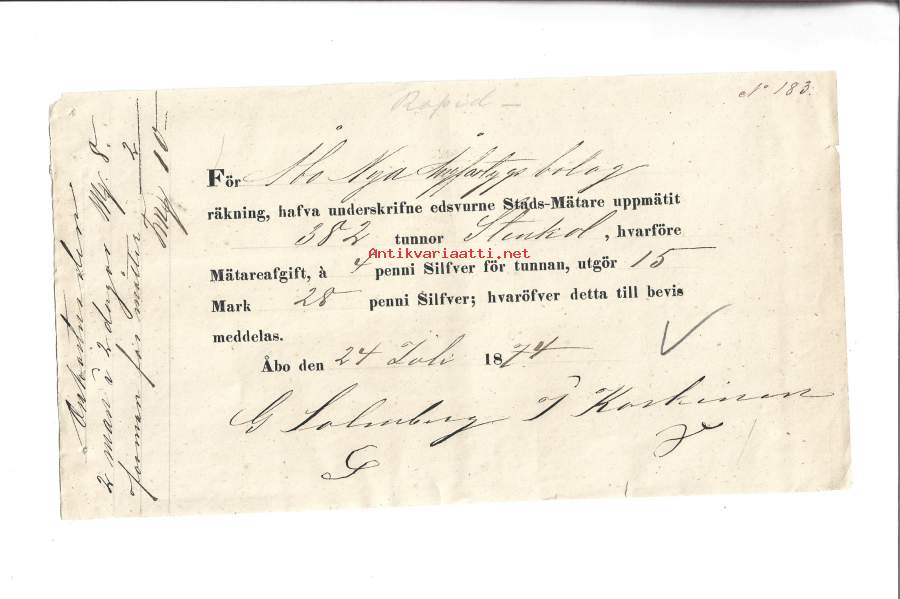 Rapid –
No 183.
För Åbo Nya Ångfartygs bolag
räkning, hafva underskrifne edsvurne Stads-Mätare uppmätit
382 tunnor Stenkol, hvarföre
Antikvariaatti.net
Mätareafgift, à 4 penni Silfver för tunnan, utgör 15
Mark 28 penni Silfver; hvaröfver detta till bevis
meddelas.
Åbo den 24 Juli 1874
G Salmberg J Koskinen
2 man i 2 dagar Mk 8.
forman för mått 2
Mk 10